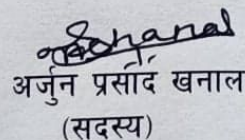 अर्जुन प्रसाद खनाल
(सदस्य)